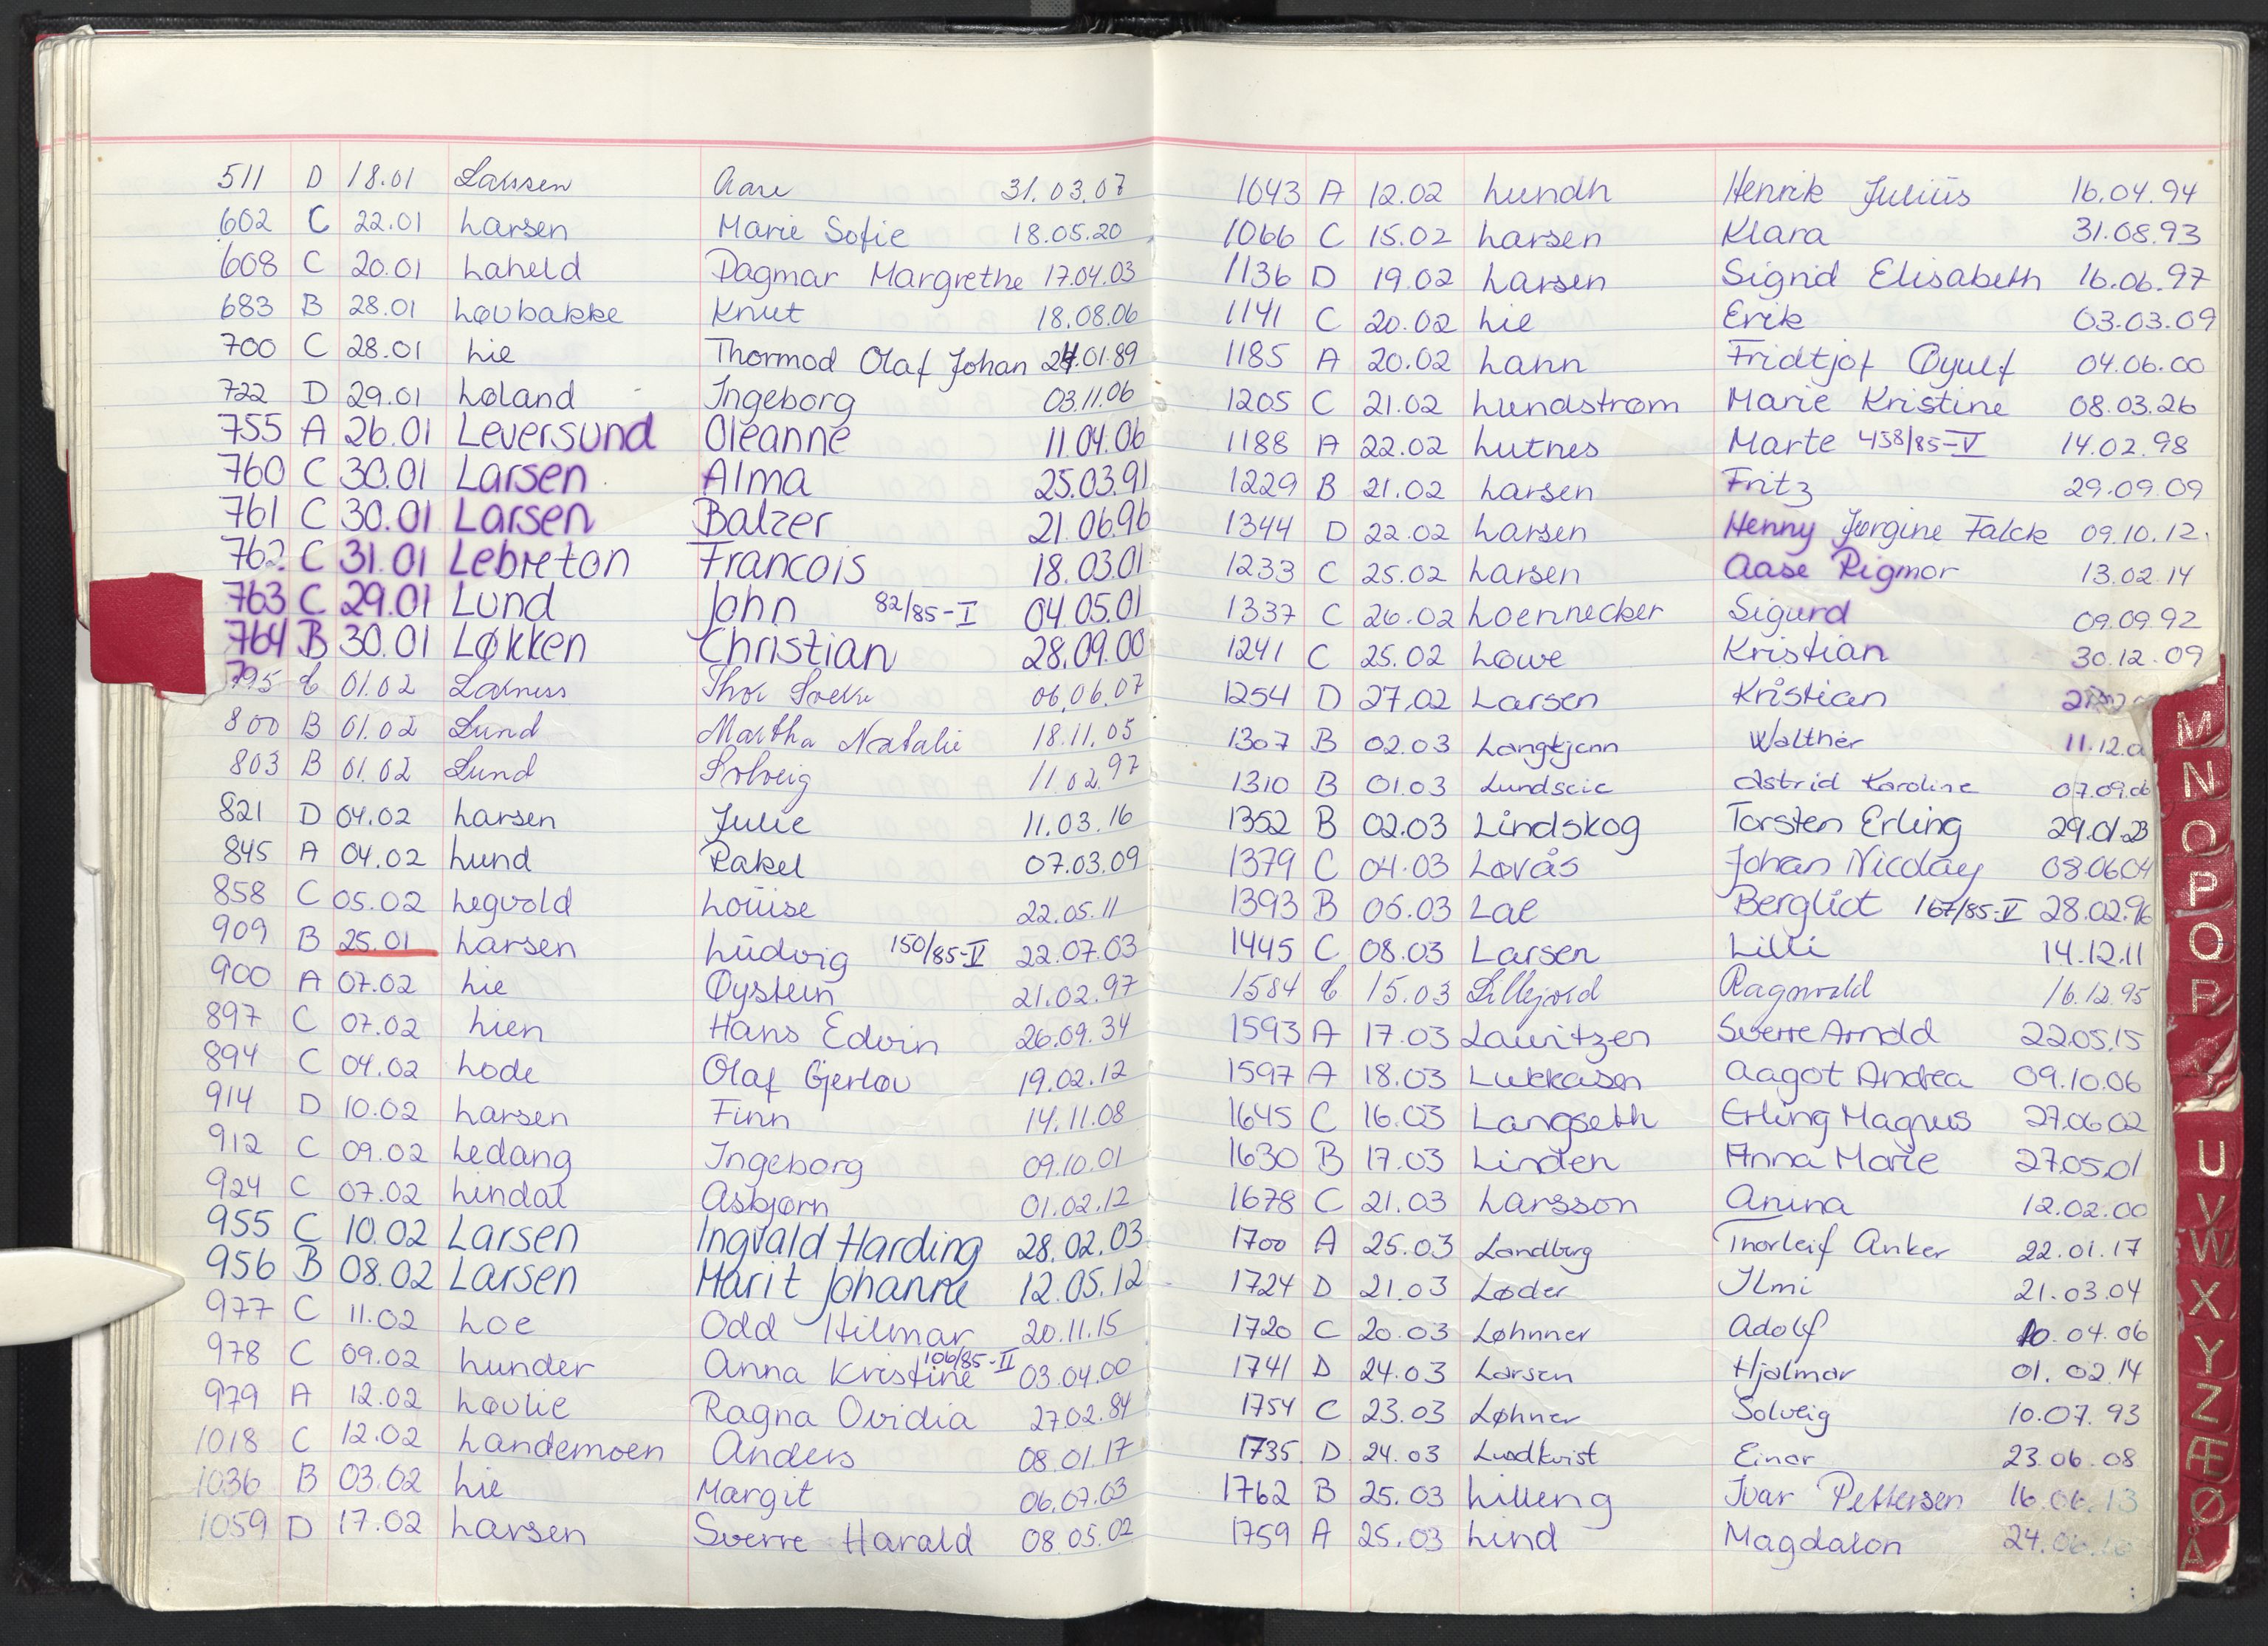 511 D 18.01 Larsen Aare 31.03.07
602 C 22.01 Larsen Marie Sofie 18.05.20
608 C 20.01 Laheld Dagmar Margrethe 17.04.03
683 B 28.01 Løvbakke Knut 18.08.06
700 C 28.01 Lie Thormod Olaf Johan 24.01.89
722 D 29.01 Løland Ingeborg 03.11.06
755 A 26.01 Leversund Oleanne 11.04.06
760 C 30.01 Larsen Alma 25.03.91
761 C 30.01 Larsen Balzer 21.06.96
762 C 31.01 Lebreton Francois 18.03.01
763 C 29.01 Lund John 82/85-I 04.05.01
764 B 30.01 Løkken Christian 28.09.00
795 C 01.02 Thor 06.06.07
800 B 01.02 Lund Martha Natalie 18.11.05
803 B 01.02 Lund Solveig 11.02.97
821 D 04.02 Larsen Julie 11.03.16
845 A 04.02 Lund Rakel 07.03.09
858 C 05.02 Legvold Louise 22.05.11
909 B 25.01 Larsen Ludvig 150/85-V 22.07.03
900 A 07.02 Lie Øystein 21.02.97
897 C 07.02 Lien Hans Edvin 26.09.34
894 C 04.02 Lode Olaf Gjerløv 19.02.12
914 D 10.02 Larsen Finn 14.11.08
912 C 09.02 Ledang Ingeborg 09.10.01
924 C 07.02 Lindal Asbjørn 01.02.12
955 C 10.02 Larsen Ingvald Harding 28.02.03
956 B 08.02 Larsen Marit Johanne 12.05.12
977 C 11.02 Loe Odd Hilmar 20.11.15
978 C 09.02 Lunder Anna Kristine 106/85-II 03.04.00
979 A 12.02 Løvlie Ragna Ovidia 27.02.84
1018 C 12.02 Landemoen Anders 08.01.17
1036 B 03.02 Lie Margit 06.07.03
1059 D 17.02 Larsen Sverre Harald 08.05.02
1043 A 12.02 Lundh Henrik Julius 16.04.94
1066 C 15.02 Larsen Klara 31.08.93
1136 D 19.02 Larsen Sigrid Elisabeth 16.06.97
1141 C 20.02 Lie Erik 03.03.09
1185 A 20.02 Lann Fridtjof Øyulf 04.06.00
1205 C 21.02 Lundstrøm Marie Kristine 08.03.26
1188 A 22.02 Lutnes Marte 458/85-V 14.02.98
1229 B 21.02 Larsen Fritz 29.09.09
1344 D 22.02 Larsen Henny Jørgine Falck 09.10.12.
1233 C 25.02 Larsen Aase Rigmor 13.02.14
1337 C 26.02 Loennecker Sigurd 09.09.92
1241 C 25.02 Løwe Kristian 30.12.09
1254 D 27.02 Larsen Kristian
1307 B 02.03 Langtjenn Walther 11.12.0
1310 B 01.03 Lundseie Astrid Karoline 07.09.06
1352 B 02.03 Lindskog Torsten Erling 29.01.23
1379 C 04.03 Løvås Johan Nicolay 08.06.04
1393 B 06.03 Lae Bergliot 167/85-V 28.02.96
1445 C 08.03 Larsen Lilli 14.12.11
1584 C 15.03 Lillejord Ragnvald 16.12.95
1593 A 17.03 Lauritzen Sverre Arnold 22.05.15
1597 A 18.03 Lukkasen Aagot Andrea 09.10.06
1645 C 16.03 Langseth Erling Magnus 27.06.02
1630 B 17.03 Linden Anna Marie 27.05.01
1678 C 21.03 Larsson Anina 12.02.00
1700 A 25.03 Landberg Thorleif Anker 22.01.17
1724 D 21.03 Løder Ilmi 21.03.04
1720 C 20.03 Løhnner Adolf 10.04.06
1741 D 24.03 Larsen Hjalmar 01.02.14
1754 C 23.03 Løhner Solveig 10.07.93
1735 D 24.03 Lundkvist Einar 23.06.08
1762 B 25.03 Lilleng Ivar Pettersen 16.06.13
1759 A 25.03 Lind Magdalon 24.06.
M
N
O
P
Q
R
U
V
W
X
Y
Z
Æ
Ø
Å